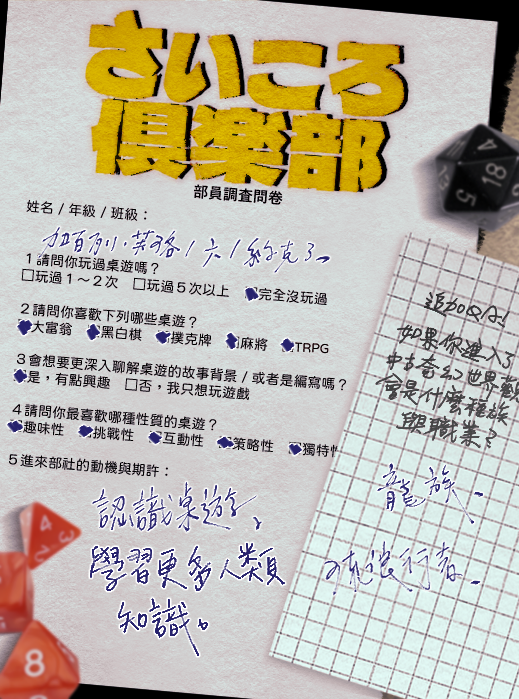 さいころ
倶楽部
部員調査問卷
姓名 / 年級 / 班級：
加百列·英格 / 六 / 約克
1 請問你玩過桌遊嗎？
□玩過１～２次 □玩過５次以上 完全沒玩過
2 請問你喜歡下列哪些桌遊？
大富翁 黑白棋 撲克牌 麻將 TRPG
3 會想要更深入聊解桌遊的故事背景 / 或者是編寫嗎？
是，有點興趣 □否，我只想玩遊戲
4 請問你最喜歡哪種性質的桌遊？
趣味性 挑戰性 互動性 策略性 獨特性
5 進來部社的動機與期許：
認識桌遊、
學習更多人類
知識。
追加Q&A！
如果你進入了
中古奇幻世界觀
會是什麼種族
與職業？
龍族。
流浪行者。
4
2
3
8
18
5